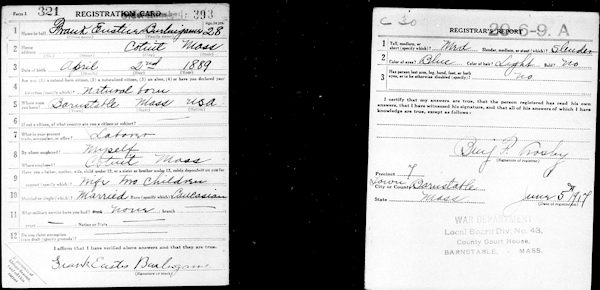 Form 1
321
REGISTRATION CARD
393
1 Name in full Frank Eustis Burlingame 28
2 Home address Cotuit Mass
3 Date of birth April 2nd 1889
4 Are you (1) a natural-born citizen, (2) a naturalized citizen, (3) an alien, (4) or have you declared your
Natural born
5 Where were you born? Barnstable Mass USA
6 If not a citizen, of what country are you a citizen or subject?
7 What is your present trade, occupation, or office? Laborer
8 By whom employed? Myself
Where employed? Cotuit Mass
9 Have you a father, mother, wife, child under 12, or a sister or brother under 12, solely dependent on you for
support (specify which)? Wife No Children
10 Married or single (which)? Married Race (specify which)? Caucasian
11 What military service have you had? Rank None branch
years Nation or State
12 Do you claim exemption
from draft (specify grounds)?
I affirm that I have verified above answers and that they are true.
Frank Eustis Burlingame
(Signature or mark)
C 30
20-6-9. A
REGISTRAR'S REPORT
1 Tall, medium, or short (specify which)? Med Slender, medium, or stout (which)? Slender
2 Color of eyes? Blue Color of hair? Light Bald? No
3 Has person lost arm, leg, hand, foot, or both
eyes, or is he otherwise disabled (specify)? No
I certify that my answers are true, that the person registered has read his own
answers, that I have witnessed his signature, and that all of his answers of which I have
knowledge are true, except as follows:
Benj F. Crosby
(Signature of registrar)
Precinct 7
Town
City or County Barnstable
State Mass
June 5th 1917
(Date of registration)
WAR DEPARTMENT
Local Board Div. No. 43,
County Court House,
BARNSTABLE, - MASS.